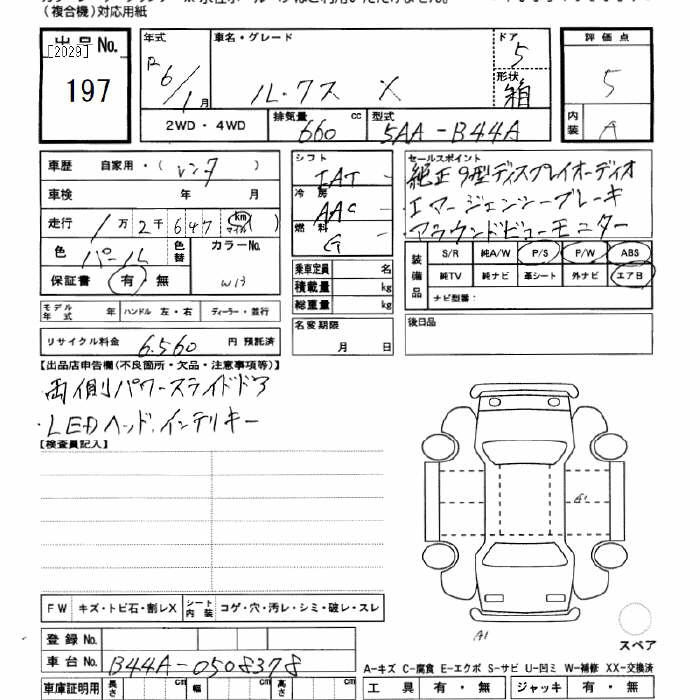 (複合機)対応用紙
出品No.
[2029]
197
年式 車名・グレード ドア
R 6/1月 ルークス X 5
形状
箱
2WD・4WD 排気量 660 cc 型式 5AA-B44A
評価点
5
内装 A
車歴 自家用・(レンタ)
車検 年 月
走行 1万2千647 km マイル
色 パール 色替 カラーNo. W13
保証書 有・無
モデル年式 年 ハンドル 左・右 ディーラー・並行
リサイクル料金 6,560 円 預託済
シフト IAT
冷房 AAC
燃料 G
乗車定員 名
積載量 kg
総重量 kg
名変期限
月 日
セールスポイント
・純正9型ディスプレイオーディオ
・エマージェンシーブレーキ
・アラウンドビューモニター
装備品 S/R 純A/W P/S P/W ABS
純TV 純ナビ 革シート 外ナビ エアB
ナビ型番:
後日品
【出品店申告欄(不良箇所・欠品・注意事項等)】
両側パワースライドドア
・LEDヘッド・インテリキー
【検査員記入】
A1
A1
FW キズ・トビ石・割レX シート内装 コゲ・穴・汚レ・シミ・破レ・スレ
登録No.
車台No. B44A-0508378
車庫証明用 長さ cm 幅 cm 高さ cm
スペア
A-キズ C-腐食 E-エクボ S-サビ U-凹ミ W-補修 XX-交換済
工具 有・無 ジャッキ 有・無